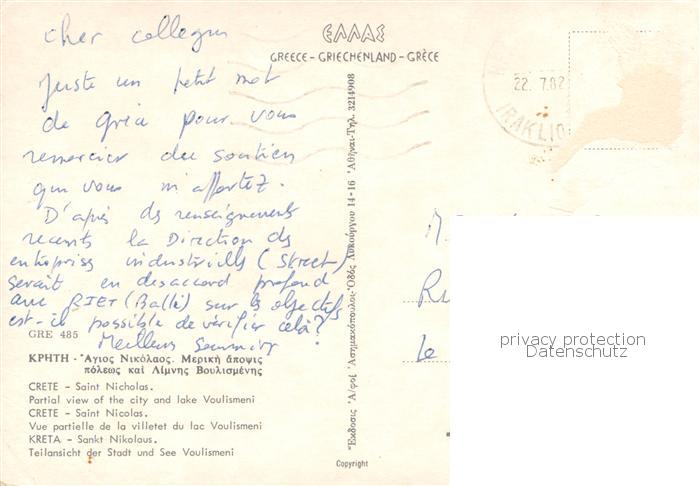 cher collegue
Juste un petit mot
de Grèce pour vous
remercier du soutien
que vous m'apportez.
D'après des renseignements
recents la Direction des
entreprises industrielles (Street)
serait en desaccord profond
avec RIET (Ballé) sur les objectifs
est-il possible de vérifier celà?
Meilleurs
GRE 485
ΚΡΗΤΗ - Ἅγιος Νικόλαος. Μερικὴ ἄποψις
πόλεως καὶ Λίμνης Βουλισμένης
CRETE - Saint Nicholas.
Partial view of the city and lake Voulismeni
CRETE - Saint Nicolas.
Vue partielle de la villetet du lac Voulismeni
KRETA - Sankt Nikolaus.
Teilansicht der Stadt und See Voulismeni
ΕΛΛΑΣ
GREECE - GRIECHENLAND - GRÈCE
Ἔκδοσις Ἀ/φοὶ Ἀσημακόπουλοι-Ὁδὸς Λυκούργου 14-16 Ἀθῆναι-Τηλ. 3214908
Copyright
22. 7.82
IRAKLIO
M.
Ru
Le
privacy protection
Datenschutz